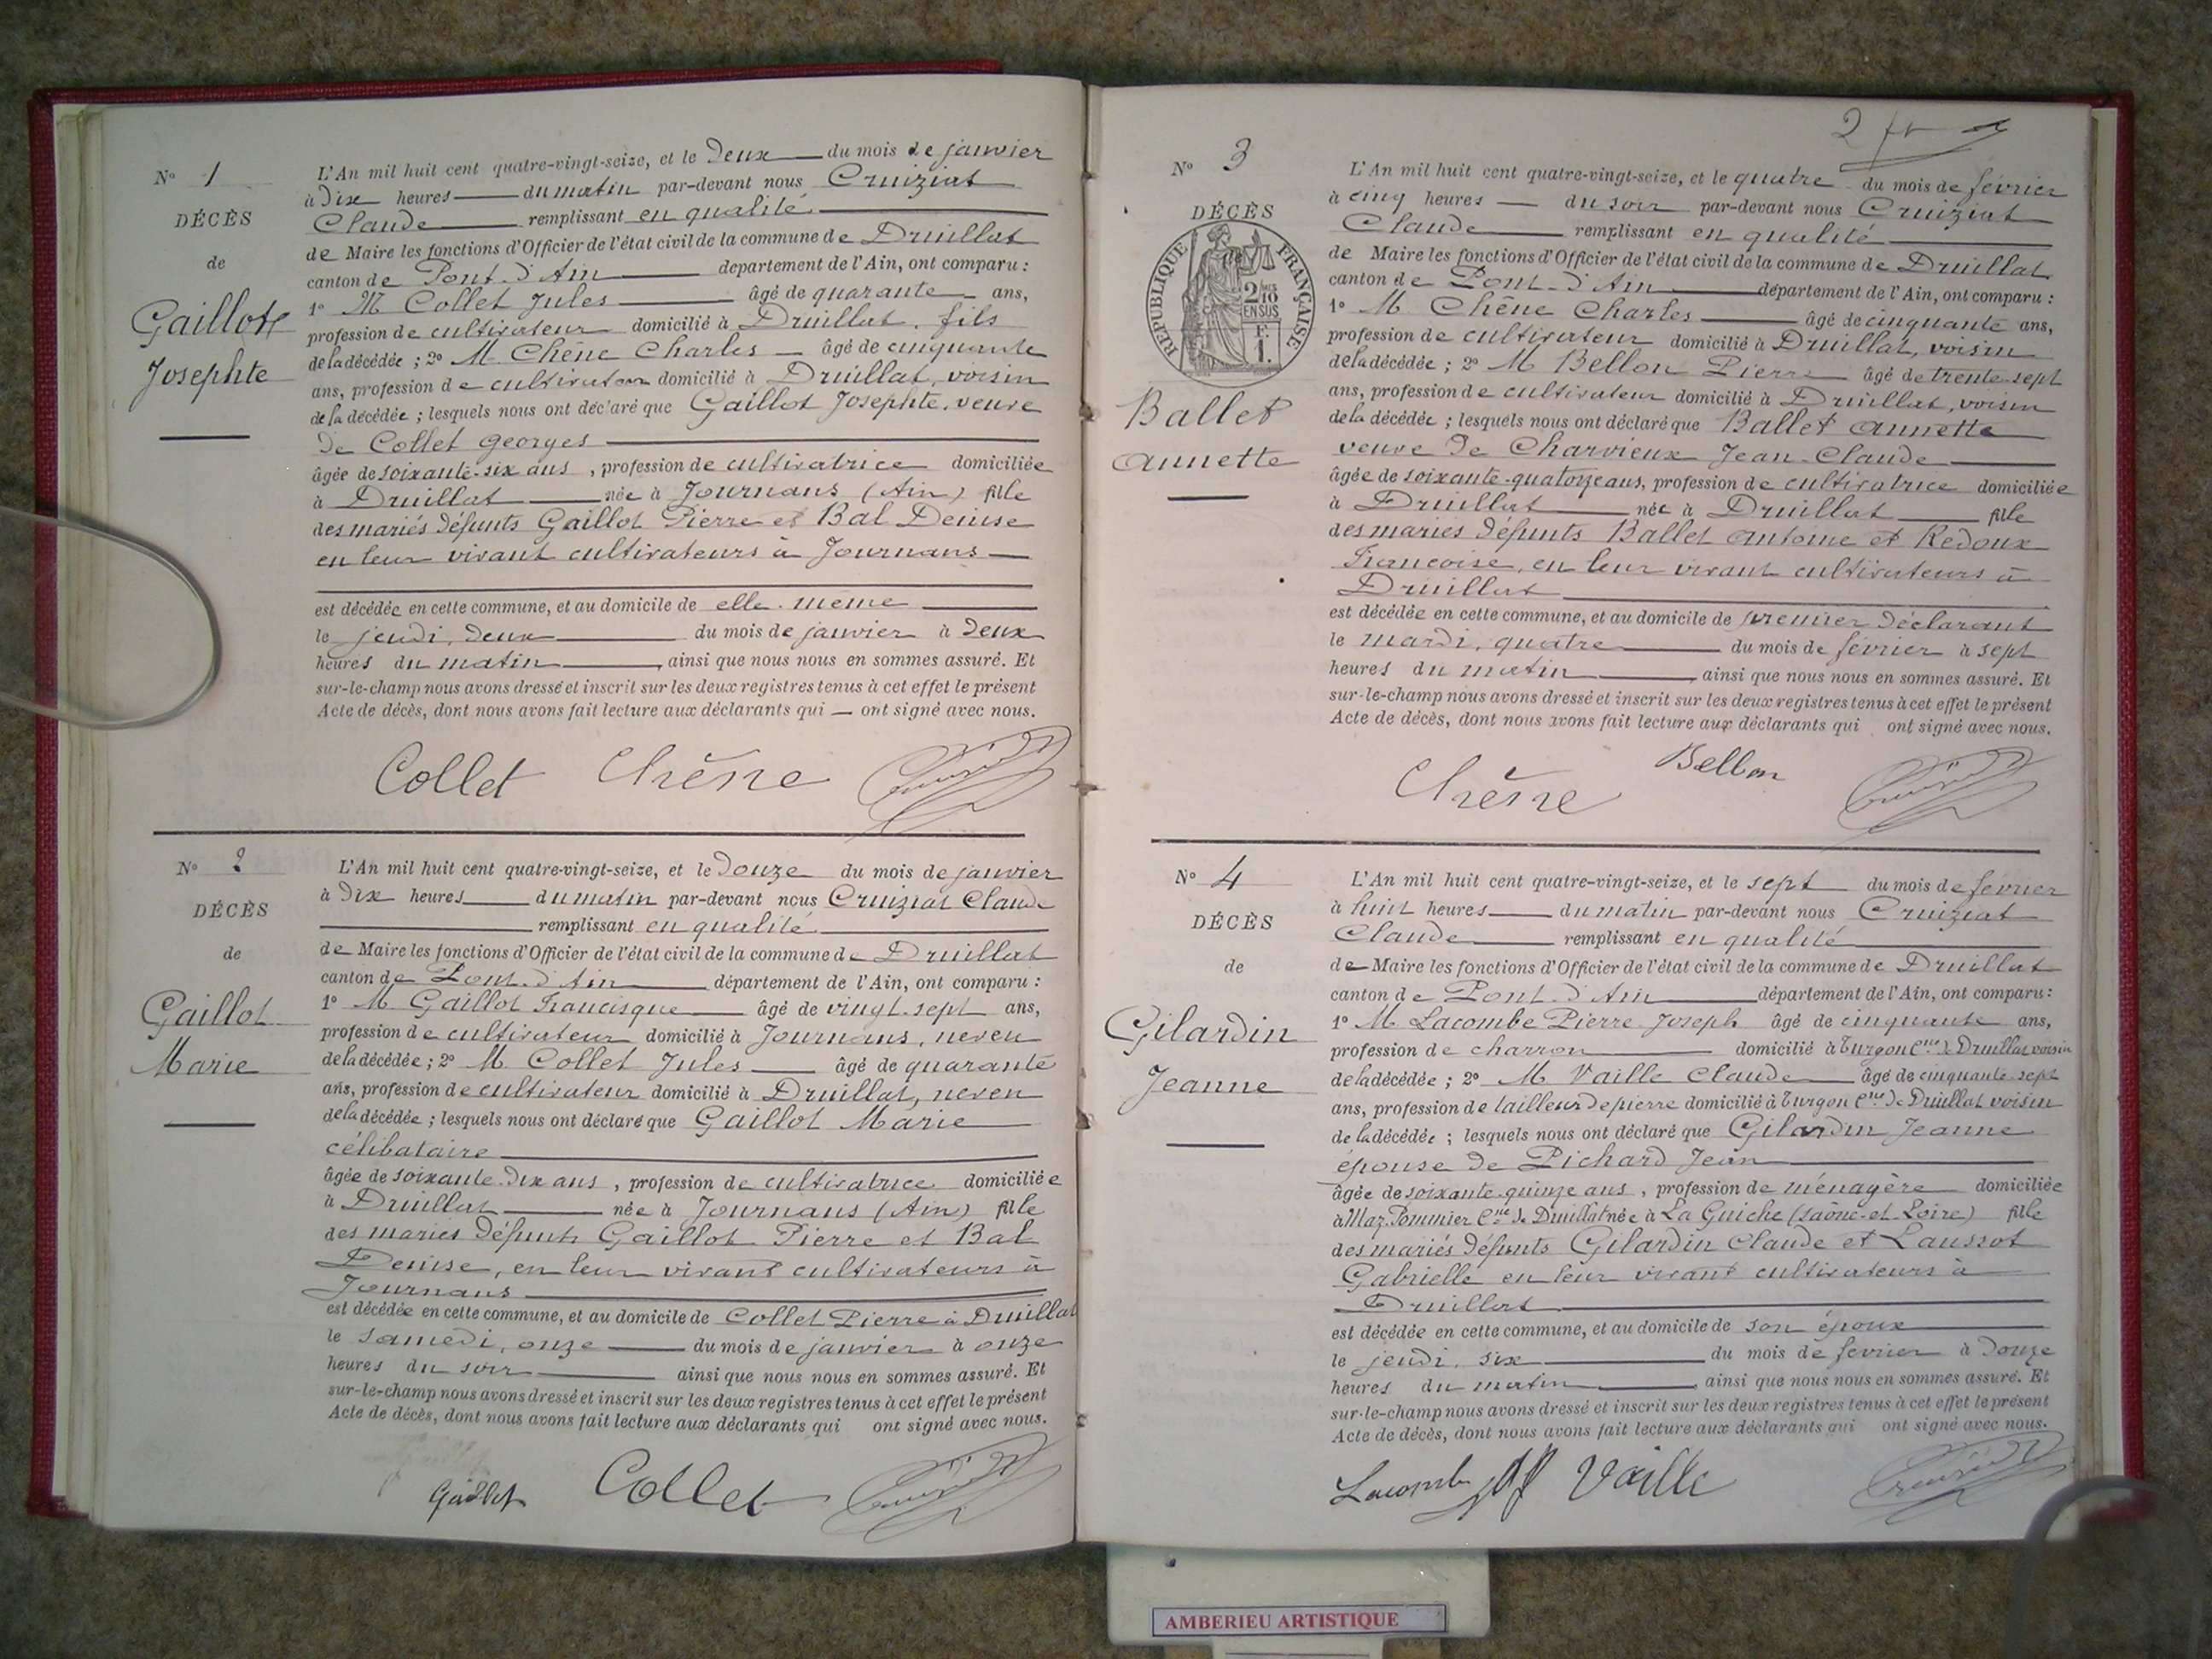 N° 1
DÉCÈS
de
Gaillot
Josephte
L'An mil huit cent quatre-vingt-seize, et le Deux du mois de janvier
à Dix heures du matin par-devant nous Cruiziat
Claude remplissant en qualité
de Maire les fonctions d'Officier de l'état civil de la commune de Druillat
canton de Pont-d'Ain département de l'Ain, ont comparu :
1° M Collet Jules âgé de quarante ans,
profession de cultivateur domicilié à Druillat, fils
de la décédée ; 2° M Chêne Charles âgé de cinquante
ans, profession de cultivateur domicilié à Druillat, voisin
de la décédée ; lesquels nous ont déclaré que Gaillot Josephte, veuve
de Collet Georges
âgée de soixante-six ans, profession de cultivatrice domiciliée
à Druillat née à Journans (Ain) fille
des mariés défunts Gaillot Pierre et Bal Denise
en leur vivant cultivateurs à Journans
est décédée en cette commune, et au domicile de elle-même
le jeudi, deux du mois de janvier à deux
heures du matin, ainsi que nous nous en sommes assuré. Et
sur-le-champ nous avons dressé et inscrit sur les deux registres tenus à cet effet le présent
Acte de décès, dont nous avons fait lecture aux déclarants qui — ont signé avec nous.
Collet Chêne Cruiziat
N° 2
DÉCÈS
de
Gaillot
Marie
L'An mil huit cent quatre-vingt-seize, et le Douze du mois de janvier
à Dix heures du matin par-devant nous Cruiziat Claude
remplissant en qualité
de Maire les fonctions d'Officier de l'état civil de la commune de Druillat
canton de Pont-d'Ain département de l'Ain, ont comparu :
1° M Gaillot Francisque âgé de vingt-sept ans,
profession de cultivateur domicilié à Journans, neveu
de la décédée ; 2° M. Collet Jules âgé de quarante
ans, profession de cultivateur domicilié à Druillat, neveu
de la décédée ; lesquels nous ont déclaré que Gaillot Marie
célibataire
âgée de soixante-dix ans, profession de cultivatrice domiciliée
à Druillat née à Journans (Ain) fille
des mariés défunts Gaillot Pierre et Bal
Denise, en leur vivant cultivateurs à
Journans
est décédée en cette commune, et au domicile de Collet Pierre à Druillat
le samedi, onze du mois de janvier à onze
heures du soir ainsi que nous nous en sommes assuré. Et
sur-le-champ nous avons dressé et inscrit sur les deux registres tenus à cet effet le présent
Acte de décès, dont nous avons fait lecture aux déclarants qui ont signé avec nous.
Gaillot Collet Cruiziat
2 fr
N° 3
DÉCÈS
RÉPUBLIQUE FRANÇAISE
2/10
EN SUS
F.
1.
Ballet
Annette
L'An mil huit cent quatre-vingt-seize, et le quatre du mois de février
à cinq heures du soir par-devant nous Cruiziat
Claude remplissant en qualité
de Maire les fonctions d'Officier de l'état civil de la commune de Druillat
canton de Pont-d'Ain département de l'Ain, ont comparu :
1° M Chêne Charles âgé de cinquante ans,
profession de cultivateur domicilié à Druillat, voisin
de la décédée ; 2° M Bellon Pierre âgé de trente-sept
ans, profession de cultivateur domicilié à Druillat, voisin
de la décédée ; lesquels nous ont déclaré que Ballet Annette
veuve de Charvieux Jean-Claude
âgée de soixante-quatorze ans, profession de cultivatrice domiciliée
à Druillat née à Druillat fille
des mariés défunts Ballet Antoine et Redoux
Francoise, en leur vivant cultivateurs à
Druillat
est décédée en cette commune, et au domicile de premier déclarant
le mardi, quatre du mois de février à sept
heures du matin, ainsi que nous nous en sommes assuré. Et
sur-le-champ nous avons dressé et inscrit sur les deux registres tenus à cet effet le présent
Acte de décès, dont nous avons fait lecture aux déclarants qui ont signé avec nous.
Chêne Bellon Cruiziat
N° 4
DÉCÈS
de
Gilardin
Jeanne
L'An mil huit cent quatre-vingt-seize, et le sept du mois de février
à huit heures du matin par-devant nous Cruiziat
Claude remplissant en qualité
de Maire les fonctions d'Officier de l'état civil de la commune de Druillat
canton de Pont-d'Ain département de l'Ain, ont comparu :
1° M Lacombe Pierre Joseph âgé de cinquante ans,
profession de charron domicilié à Turgon Cne de Druillat voisin
de la décédée ; 2° M Vaille Claude âgé de cinquante-sept
ans, profession de tailleur de pierre domicilié à Turgon Cne de Druillat voisin
de la décédée ; lesquels nous ont déclaré que Gilardin Jeanne
épouse de Pichard Jean
âgée de soixante-quinze ans, profession de ménagère domiciliée
à Maz-Pommier Cne de Druillat née à La Guiche (Saône-et-Loire) fille
des mariés défunts Gilardin Claude et Laussot
Gabrielle en leur vivant cultivateurs à
Druillat
est décédée en cette commune, et au domicile de son époux
le jeudi, six du mois de février à Douze
heures du matin, ainsi que nous nous en sommes assuré. Et
sur-le-champ nous avons dressé et inscrit sur les deux registres tenus à cet effet le présent
Acte de décès, dont nous avons fait lecture aux déclarants qui ont signé avec nous.
Lacombe Vaille Cruiziat
AMBERIEU ARTISTIQUE